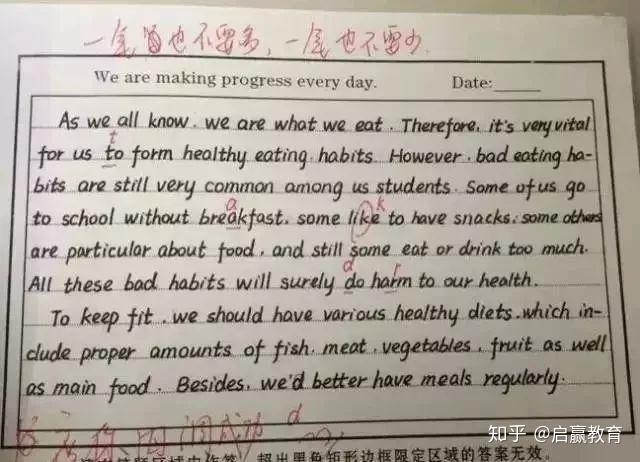 一尾也不要多，一尾也不要少.
We are making progress every day. Date:
As we all know, we are what we eat. Therefore, it's very vital
t
for us to form healthy eating habits. However, bad eating ha-
bits are still very common among us students. Some of us go
a k
to school without breakfast, some like to have snacks, some others
are particular about food, and still some eat or drink too much.
d r
All these bad habits will surely do harm to our health.
To keep fit, we should have various healthy diets, which in-
clude proper amounts of fish, meat, vegetables, fruit as well
as main food. Besides, we'd better have meals regularly.
成功 d
超出黑色矩形边框限定区域的答案无效。
知乎 @启赢教育